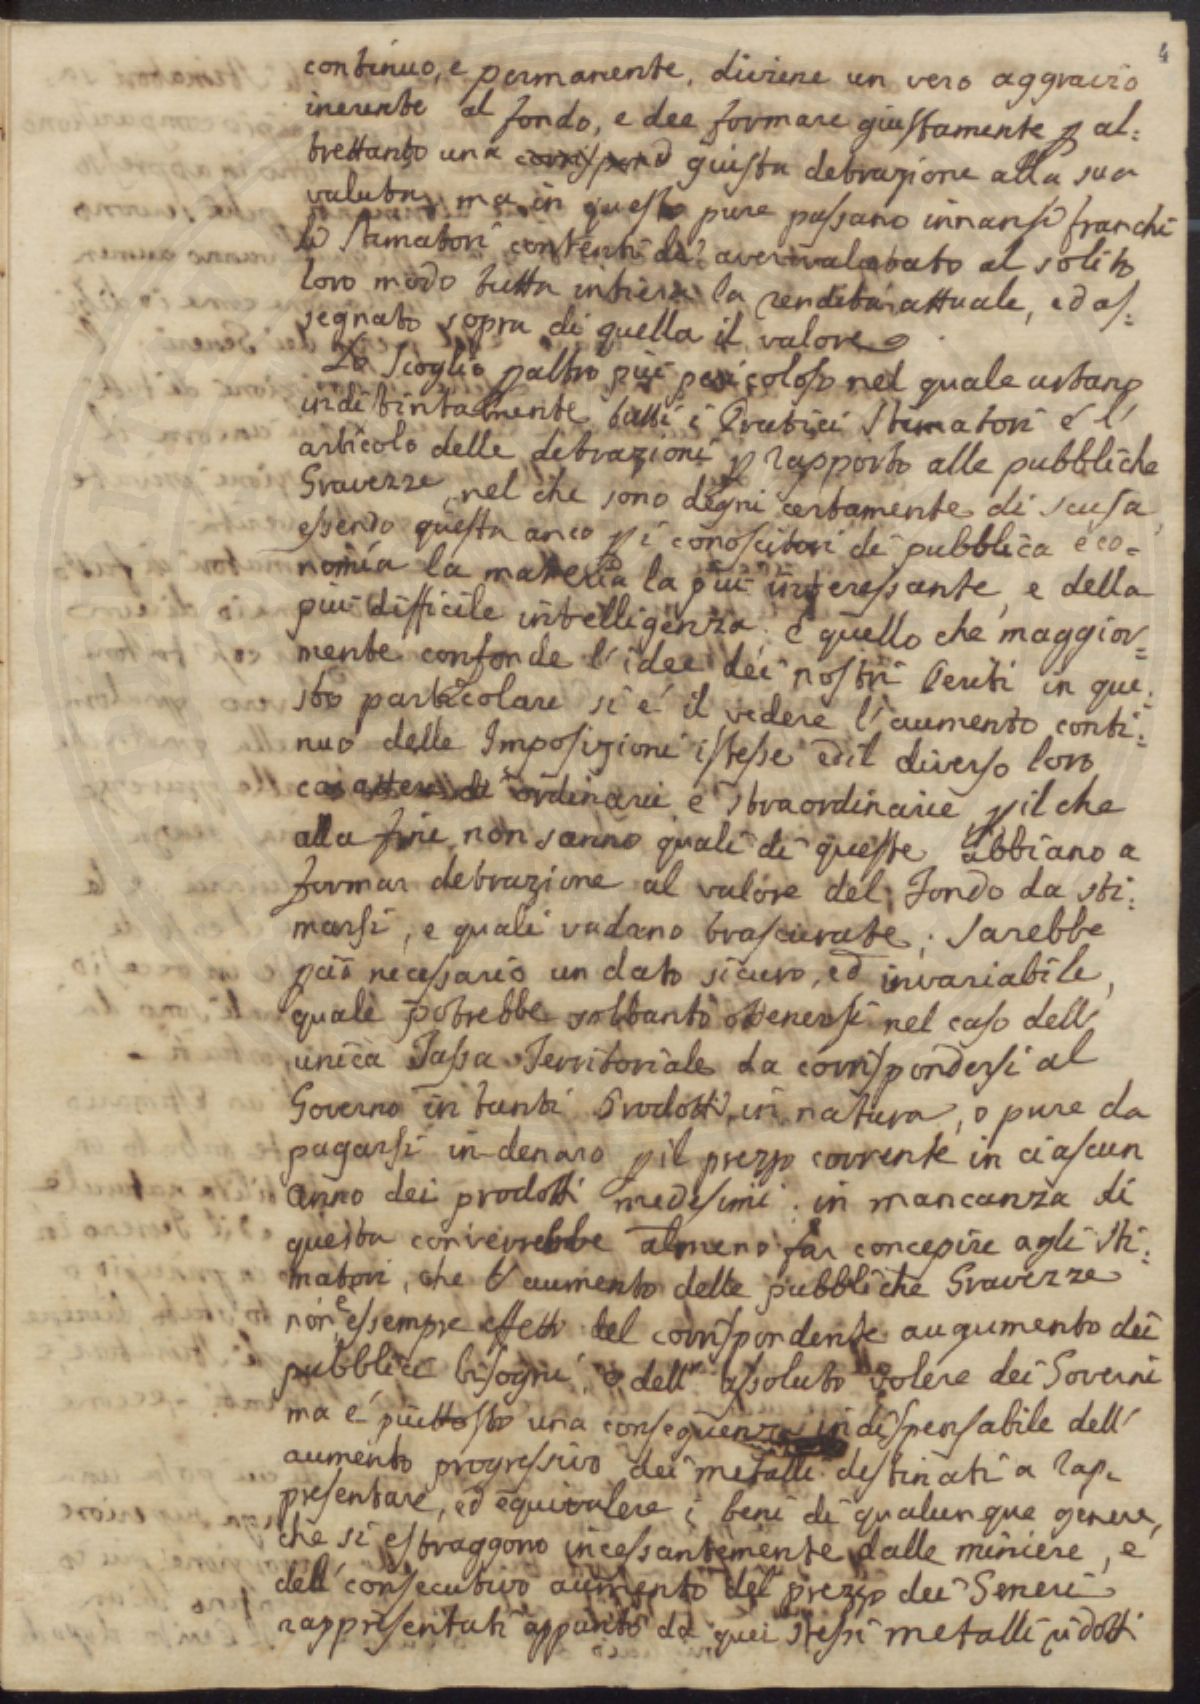 4
continuo, e permanente, diviene un vero aggravio
inerente al fondo, e dee formare giustamente p al:
trettanto una giusta detrazione alla sua
valuta, ma in questo pure passano innansi franchi
li Stimatori contenti di aver valutato al solito
loro modo tutta intiera la rendita attuale, ed as:
segnato sopra di quella il valore.
Lo Scoglio p altro più pericoloso nel quale urtano
indistintamente tutti i Pratici Stimatori è l'
articolo delle detrazioni p rapporto alle pubbliche
Gravezze, nel che sono degni certamente di scusa,
essendo questa anco p i conoscitori di pubblica eco-
nomia la materia la più interessante, e della
più difficile intelligenza. e quello che maggior=
mente confonde l'idee dei nostri Periti in que:
sto particolare si è il vedere l'aumento conti:
nuo delle Imposizioni istesse ed il diverso loro
carattere di ordinarie e straordinarie, p il che
alla fine non sanno quali di queste abbiano a
formar detrazione al valore del Fondo da sti:
marsi, e quali vadano trascurate; Sarebbe
pciò necessario un dato sicuro, ed invariabile,
quale potrebbe soltanto ottenersi nel caso dell'
unica Tassa Territoriale da corrispondersi al
Governo in tanti Prodotti in natura, o pure da
pagarsi in denaro p il prezzo corrente in ciascun
anno dei prodotti medesimi. in mancanza di
questa converrebbe almeno far concepire agli Sti:
matori, che l'aumento delle pubbliche Gravezze
non è sempre effetto del corrispondente augumento dei
pubblici bisogni, o dell' assoluto volere dei Governi
ma è piuttosto una conseguenza indispensabile dell'
aumento progressivo dei metalli destinati a rap-
presentare, ed equivalere i beni di qualunque genere,
che si estraggono incessantemente dalle miniere, e
dell' consecutivo aumento del prezzo dei Generi
rappresentati appunto da quei stessi metalli ridotti